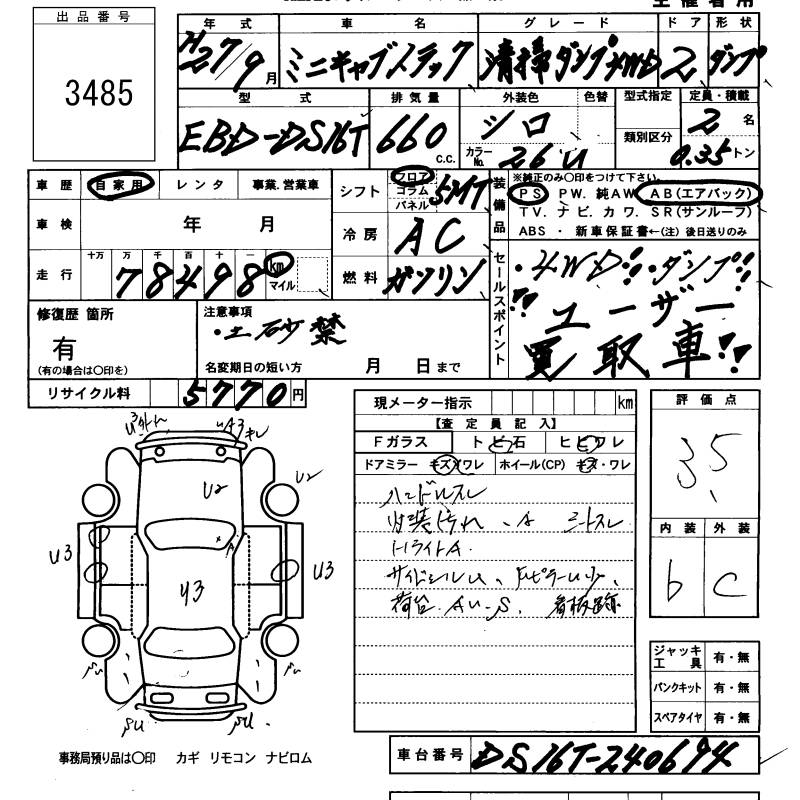 出品番号
3485
年式
H27/9月
車名
ミニキャブトラック
グレード
清掃ダンプ4WD
ドア
2
形状
ダンプ
型式
EBD-DS16T
排気量
660 c.c.
外装色
シロ
色替
カラーNo.
26U
型式指定
類別区分
定員・積載
2名
0.35トン
車歴 自家用 レンタ 事業.営業車
車検 年 月
走行 十万 万 千 百 十 一
78498 km マイル
シフト フロア コラム パネル 5MT
冷房 AC
燃料 ガソリン
装備品
※純正のみ〇印をつけて下さい。
PS PW. 純AW AB(エアバック)
TV. ナビ. カワ. SR(サンルーフ)
ABS ・ 新車保証書←(注) 後日送りのみ
セールスポイント
・4WD!!・ダンプ!!
"ユーザー
買取車"!!
修復歴 箇所
有
(有の場合は〇印を)
注意事項
・土砂禁
名変期日の短い方 月 日まで
リサイクル料 5770円
現メーター指示 km
【査定員記入】
Fガラス トビ石 ヒビワレ
ドアミラー キズ・ワレ ホイール(CP) キズ・ワレ
ハンドルスレ
内装汚れ、A シートスレ
トライトA.
サイドシルU、
荷台 AU-S. 看板跡
評価点
3.5
内装 外装
b C
ジャッキ工具 有・無
パンクキット 有・無
スペアタイヤ 有・無
U3
A3
U2
U2
A
U3
U3
U3
βU
βU
事務局預り品は〇印 カギ リモコン ナビロム
車台番号 DS16T-240694